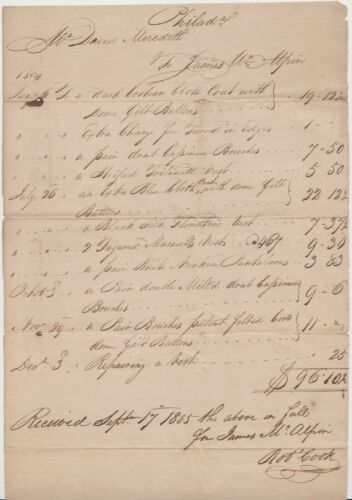 Philada
Mr. David Meredith
To James Mc Alpin
1804
To a dark Corbeau Cloth Coat with
Dome Gilt Buttons 19 - 12½
" " " Extra Charge for Turned in Edges 1 "
" " " a pair drab Casimere Breeches 7 - 50
" " " a Striped Toilinett Vest 5 50
July 26 an Extra Blue Cloth Coat with dome Gilt
Buttons 22 12½
" " " a Black Silk Florentine Vest 7 - 37½
" " " 2 Figured Marseills Vests @ 467 9 - 34
" " " a pair Nankeen Pantaloons 3 83
Octobr 3 a Pair double Mill'd drab Casimere
Breeches 9 - 6
Novr 29 a Pair Breeches patent Cord
dome Gilt Buttons 11 "
Decr 3 Repairing a Vest " 25
$ 96 10½
Received Septr 17 1805 the above in full
for James Mc Alpin
Robt Cook